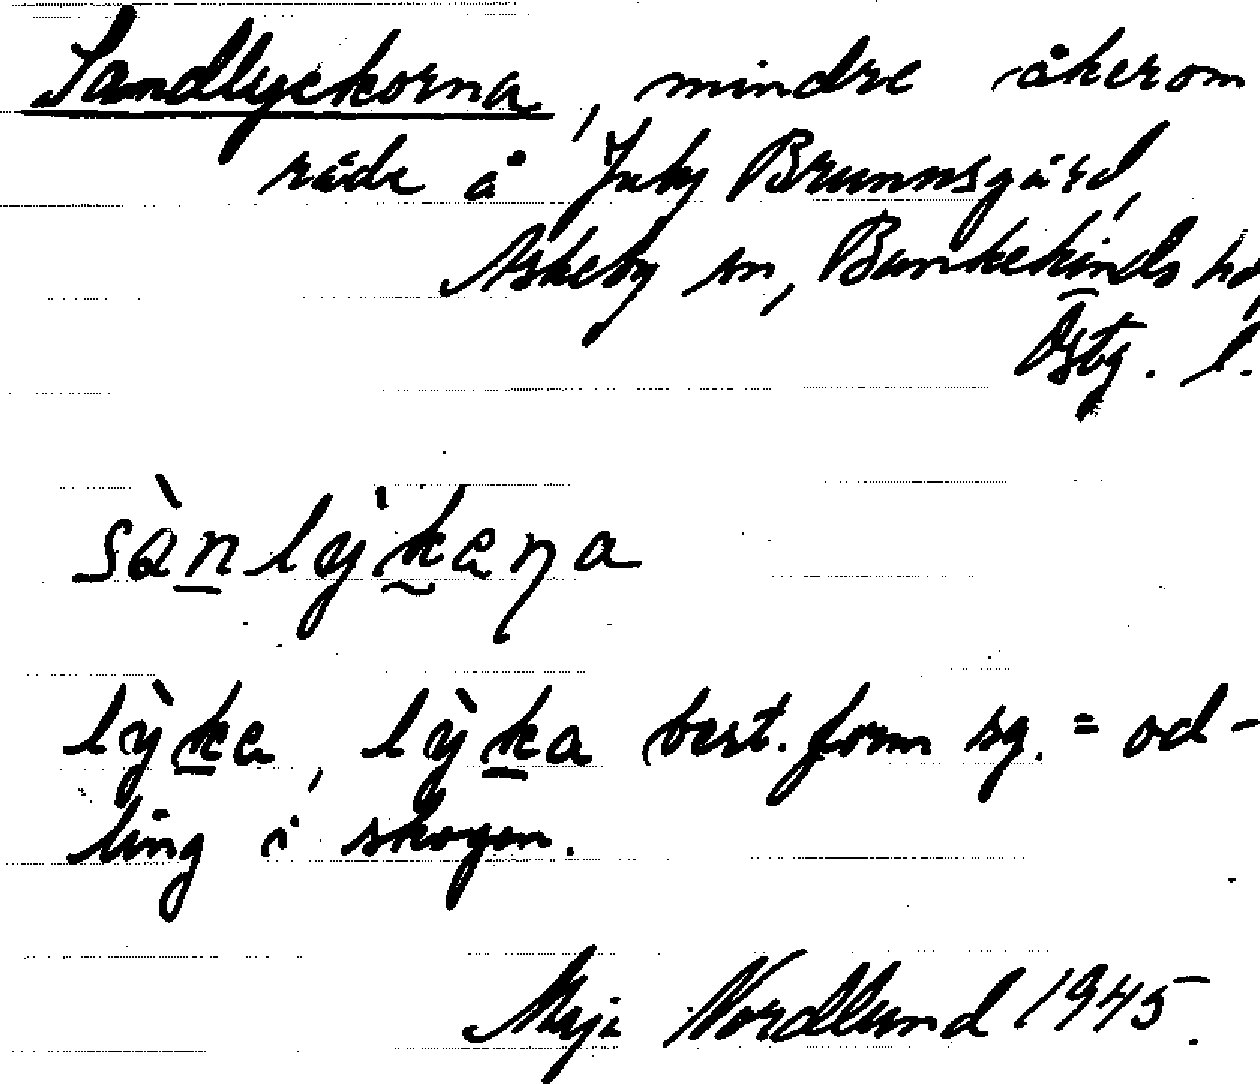 Sandlyckorna, mindre åkerom
råde å Juby Brunnsgård,
Askeby sn, Bankekinds hd,
Östg. l.
sànlỳkaṇa
lỳka, lỳka best. form sg. = od-
ling i skogen.
Maja Nordlund 1945.